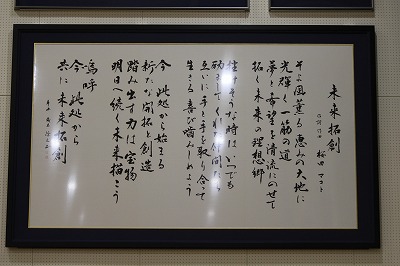 未来拓創
作詞作曲 松田 マヨト
そよ風薫る 恵みの大地に
光輝く 一筋の道
夢と希望を清流にのせて
拓く未来の理想郷
時は いつでも
仲間たち
互いに手と手を取り合って
生きる喜び噛みしめよう
今 此処から始まる
新たな開拓と創造
踏み出す力は宝物
明日へ続く未来描こう
嗚呼
今 此処から
共に 未来拓創